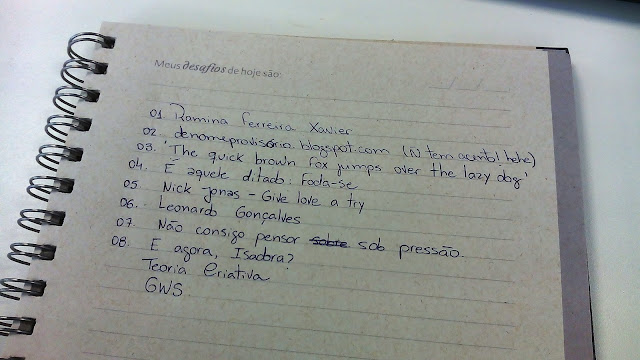 Meus desafios de hoje são:
01. Romina Ferreira Xavier
02. denomeprovisório.blogspot.com (N tem acento! hehe)
03. 'The quick brown fox jumps over the lazy dog'
04. É aquele ditado: Foda-se
05. Nick Jonas - Give love a try
06. Leonardo Gonçalves
07. Não consigo pensar sobre sob pressão.
08. E agora, Isadora?
Teoria Criativa
GWS